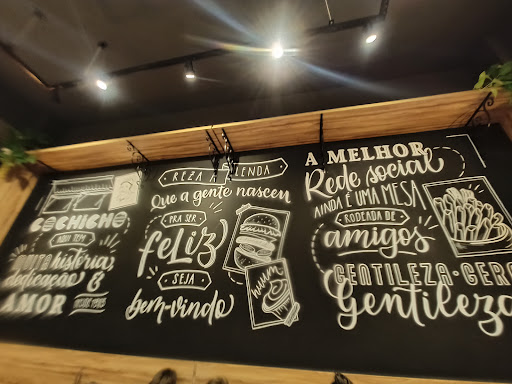 COCHICHO
AQUI TEM
muita história,
dedicação &
AMOR
REZA A LENDA
Que a gente nasceu
PRA SER
feliz
SEJA
bem-vindo
huum
A MELHOR
Rede social
AINDA É UMA MESA
RODEADA DE
amigos
GENTILEZA · GERA
Gentileza